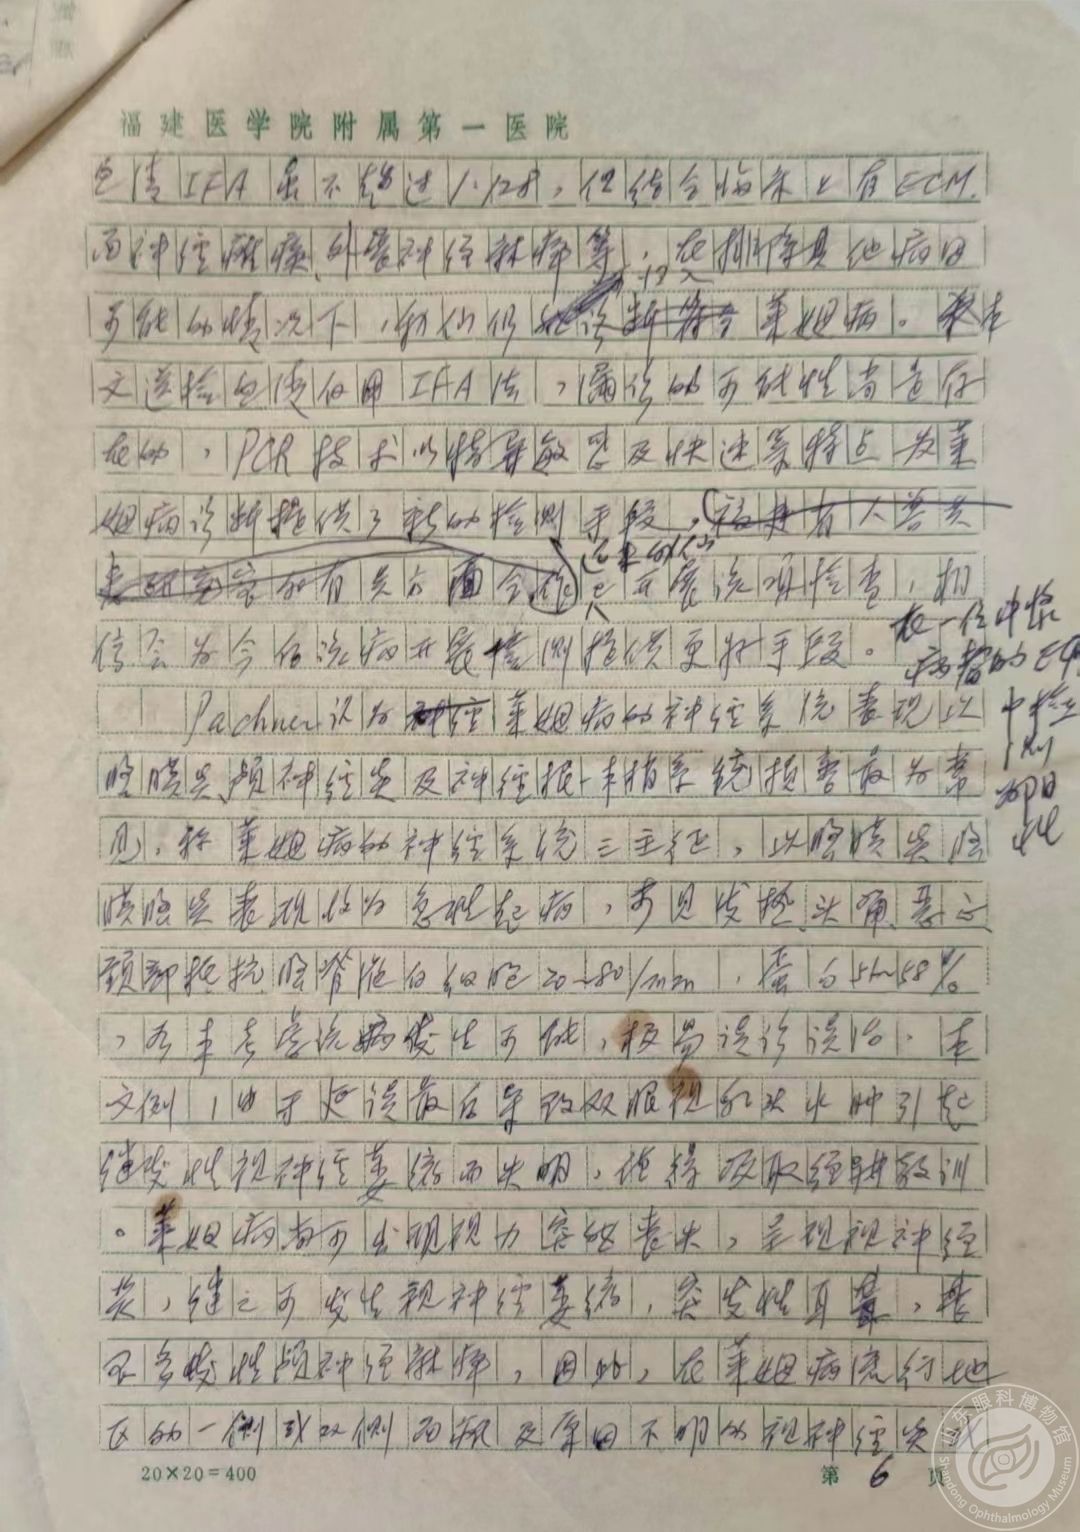 福建医学院附属第一医院
血清IFA虽不超过1:128，但结合临床上有ECM.
面神经瘫痪、外展神经麻痹等，在排除其他病因
可能的情况下，我们仍 诊断符合莱姆病。本
文送检血清仅用IFA法，漏诊的可能性尚是存
在的，PCR技术以特异敏感及快速等特点为莱
姆病诊断提供了新的检测手段，福建有人
的有关方面合作已开展这项检查，相
信会为今后该病开展检测提供更好手段。
在一位中浆
病变的
中检
测
阳
性
Pachner认为神经莱姆病的神经系统表现以
脑膜炎、颅神经炎及神经根-末梢系统损害最为常
见，称莱姆病的神经系统三主征，以脑膜炎脑
膜脑炎表现作为急性起病，可见发热、头痛、恶心
颈部抵抗，脑脊液白细胞20~80/mm，蛋白 58%
，如未考虑该病发生可能，极易误诊误治。本
文例1，由于延误最后导致双眼视乳头水肿引起
继发性视神经萎缩而失明，值得吸取经验教训
。莱姆病尚可出现视力突然丧失，呈现视神经
炎，继之可发生视神经萎缩，突发性耳聋，甚
至多发性颅神经麻痹，因此，在莱姆病流行地
区的一侧或双侧面瘫及原因不明的视神经炎或
20×20=400
第6页
山东眼科博物馆
Shandong Ophthalmology Museum